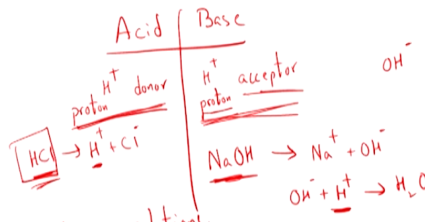 Acid Base
H⁺
proton donor
H⁺
proton acceptor
OH⁻
HCl → H⁺ + Cl⁻
NaOH → Na⁺ + OH⁻
OH⁻ + H⁺ → H₂O